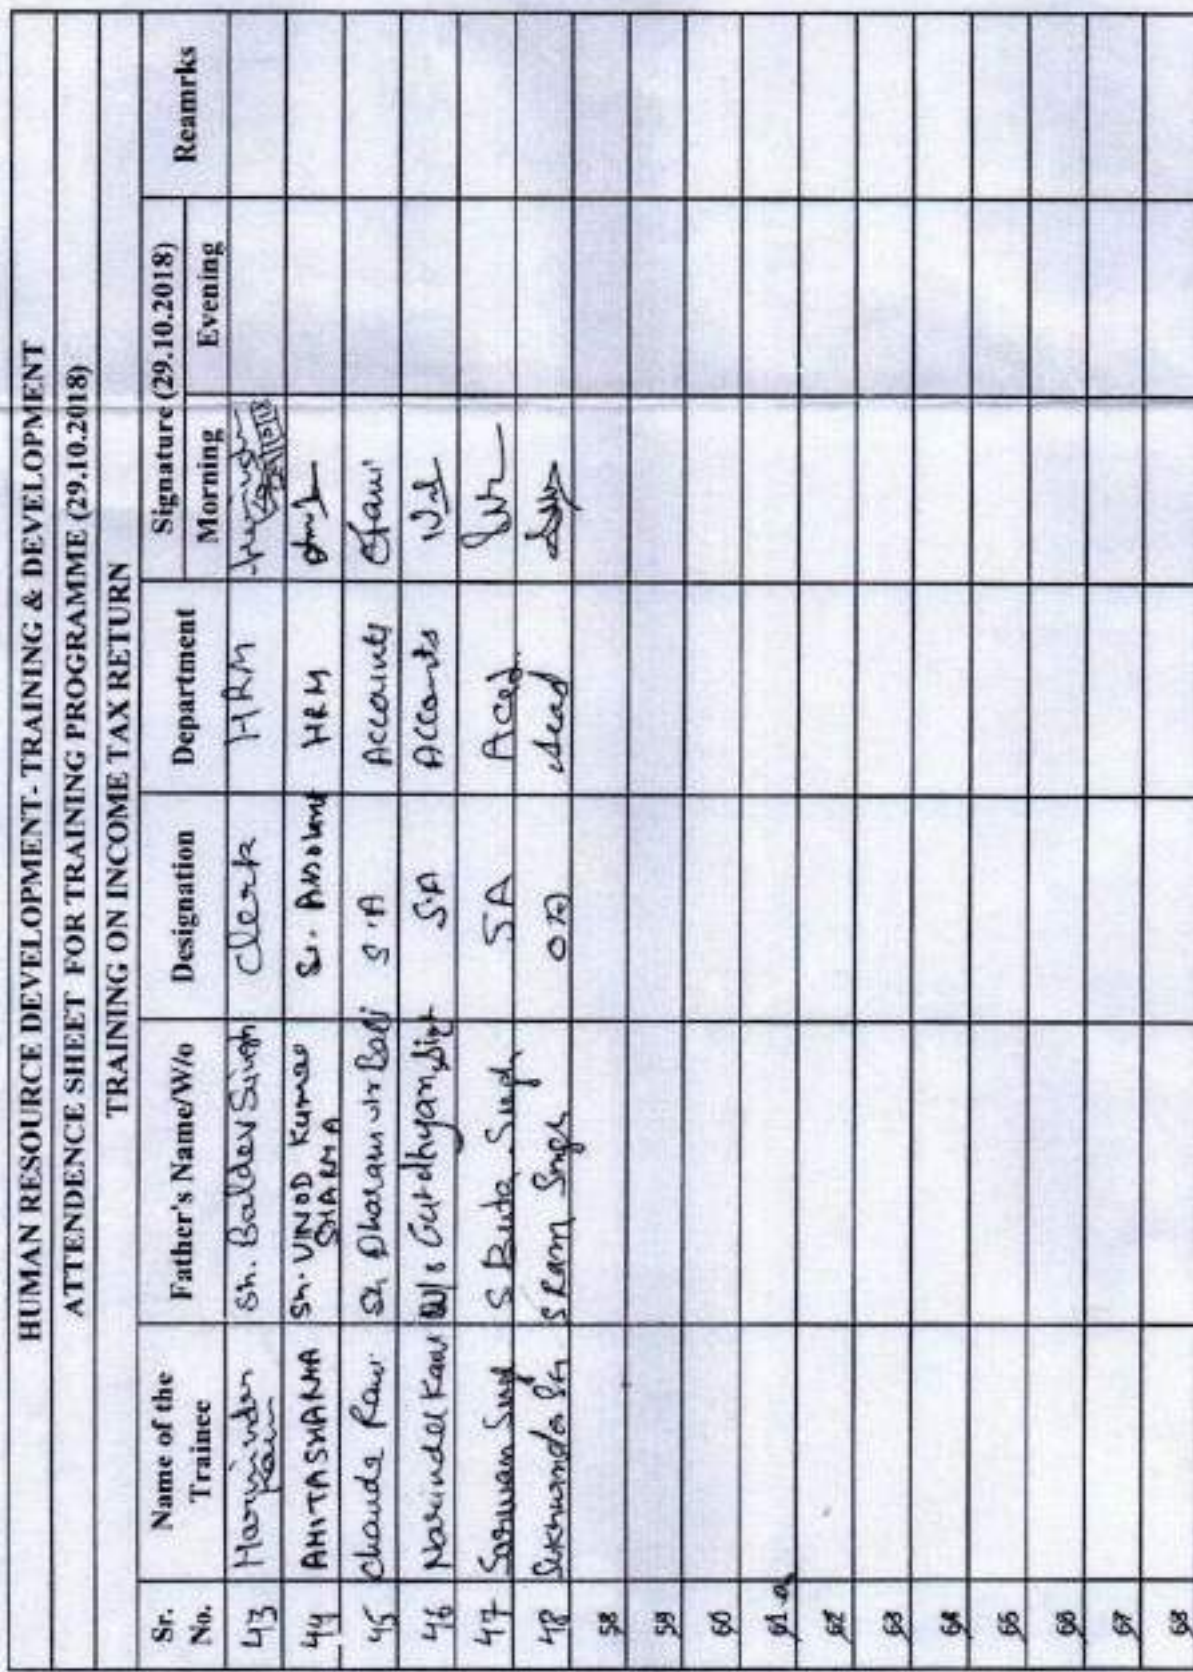 HUMAN RESOURCE DEVELOPMENT- TRAINING & DEVELOPMENT
ATTENDENCE SHEET FOR TRAINING PROGRAMME (29.10.2018)
TRAINING ON INCOME TAX RETURN
Sr. No. Name of the Trainee Father's Name/W/o Designation Department Signature (29.10.2018) Reamrks
Morning Evening
43 Harvinder Kaur Sh. Baldev Singh Clerk HRM
44 AMITA SHARMA Sh. VINOD Kumar SHARMA Sr. Assistant HRM
45 Sh. Dharamvir Bali S.A Accounts
46 Narinder Kaur W/o Gurdhyan Singh S.A Accounts
47 Sarwan Singh S Buta Singh SA Acad.
48 S Ram Singh Acad
58
59
60
61
62
63
64
65
66
67
68